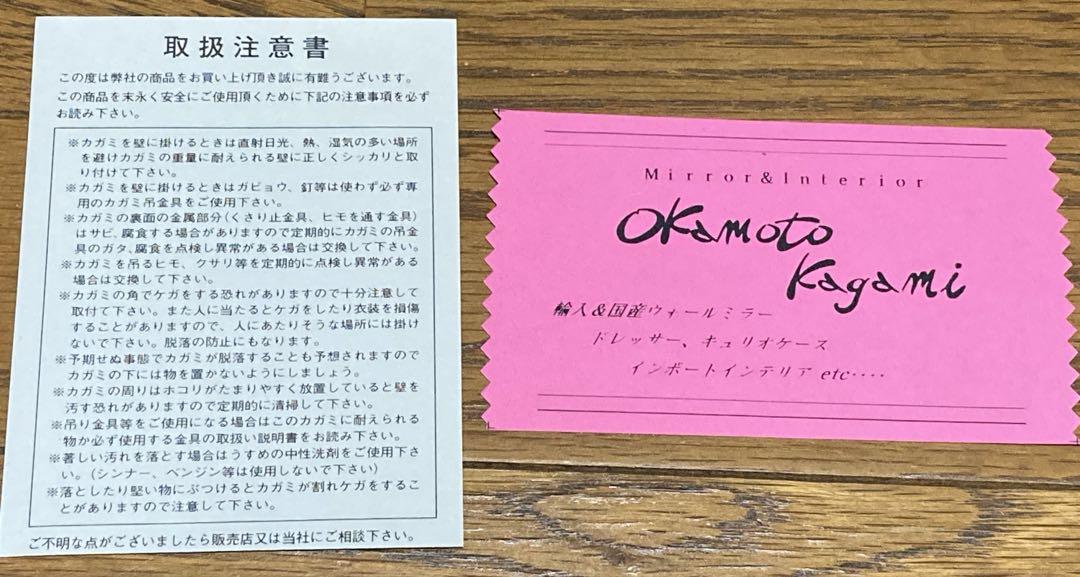 取扱注意書
この度は弊社の商品をお買い上げ頂き誠に有難うございます。
この商品を末永く安全にご使用頂くために下記の注意事項を必ず
お読み下さい。
※カガミを壁に掛けるときは直射日光、熱、湿気の多い場所
を避けカガミの重量に耐えられる壁に正しくシッカリと取
り付けて下さい。
※カガミを壁に掛けるときはガビョウ、釘等は使わず必ず専
用のカガミ吊金具をご使用下さい。
※カガミの裏面の金属部分(くさり止金具、ヒモを通す金具)
はサビ、腐食する場合がありますので定期的にカガミの吊金
具のガタ、腐食を点検し異常がある場合は交換して下さい。
※カガミを吊るヒモ、クサリ等を定期的に点検し異常がある
場合は交換して下さい。
※カガミの角でケガをする恐れがありますので十分注意して
取付て下さい。また人に当たるとケガをしたり衣装を損傷
することがありますので、人にあたりそうな場所には掛け
ないで下さい。脱落の防止にもなります。
※予期せぬ事態でカガミが脱落することも予想されますので
カガミの下には物を置かないようにしましょう。
※カガミの周りはホコリがたまりやすく放置していると壁を
汚す恐れがありますので定期的に清掃して下さい。
※吊り金具等をご使用になる場合はこのカガミに耐えられる
物か必ず使用する金具の取扱い説明書をお読み下さい。
※著しい汚れを落とす場合はうすめの中性洗剤をご使用下さ
い。(シンナー、ベンジン等は使用しないで下さい)
※落としたり堅い物にぶつけるとカガミが割れケガをするこ
とがありますので注意して下さい。
ご不明な点がございましたら販売店又は当社にご相談下さい。
Mirror&Interior
Okamoto
Kagami
輸入&国産ウォールミラー
ドレッサー、キュリオケース
インポートインテリア etc‥‥